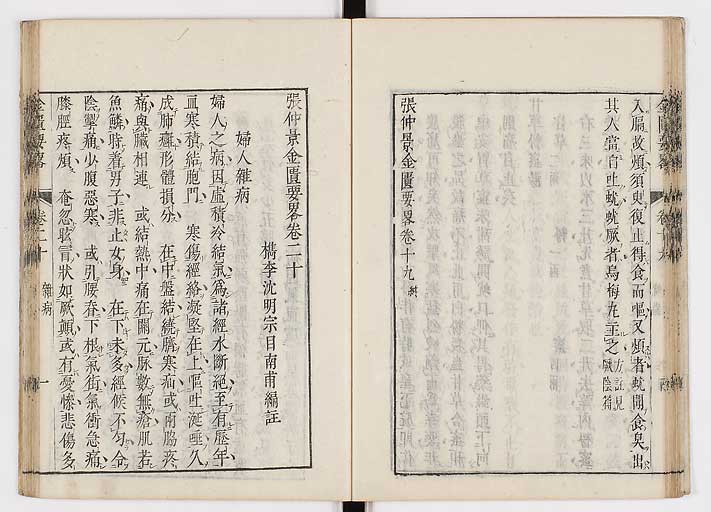 入膈故煩須臾復止得食而嘔又煩者蚘聞食臭出
其人當自吐蚘蚘厥者烏梅丸主之 方註見厥陰篇
張仲景金匱要畧卷十九 終
張仲景金匱要畧卷二十
檇李沈明宗目南甫編註
婦人雜病
婦人之病因虛積冷結氣為諸經水斷絕至有歷年
血寒積結胞門 寒傷經絡凝堅在上嘔吐涎唾久
成肺癰形體損分 在中盤結繞臍寒疝或兩脇疼
痛與臟相連 或結熱中痛在關元脉數無瘡肌若
魚鱗時着男子非止女身 在下未多經候不匀令
陰掣痛少腹惡寒 或引腰脊下根氣街氣衝急痛
膝脛疼煩 奄忽眩冒狀如厥顛或有憂慘悲傷多
金匱要畧 卷二十 雜病 一